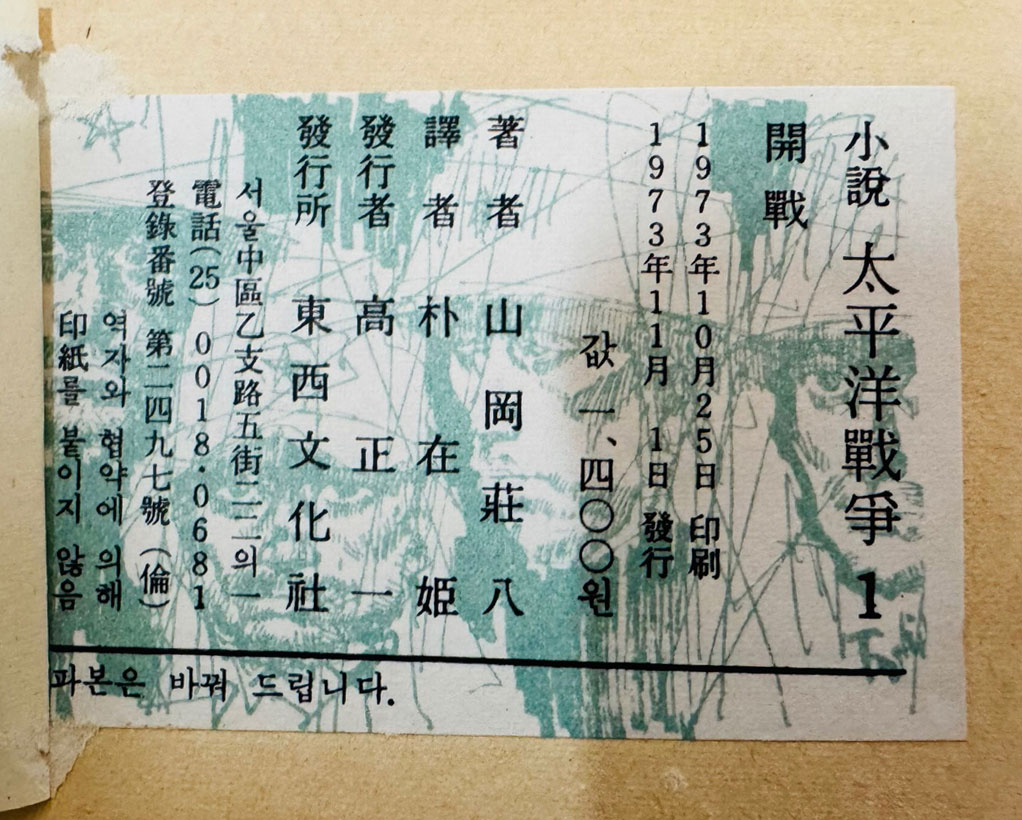 小說 太平洋戰爭 1
開戰
1973年10月25日 印刷
1973年11月 1日 發行
값 一、四〇〇원
著者 山岡莊八
譯者 朴在姬
發行者 高正一
發行所 東西文化社
서울中區乙支路五街二二의一
電話(25) 0018·0681
登錄番號 第二四九七號 (倫)
역자와 협약에 의해
印紙를 붙이지 않음
파본은 바꿔 드립니다.